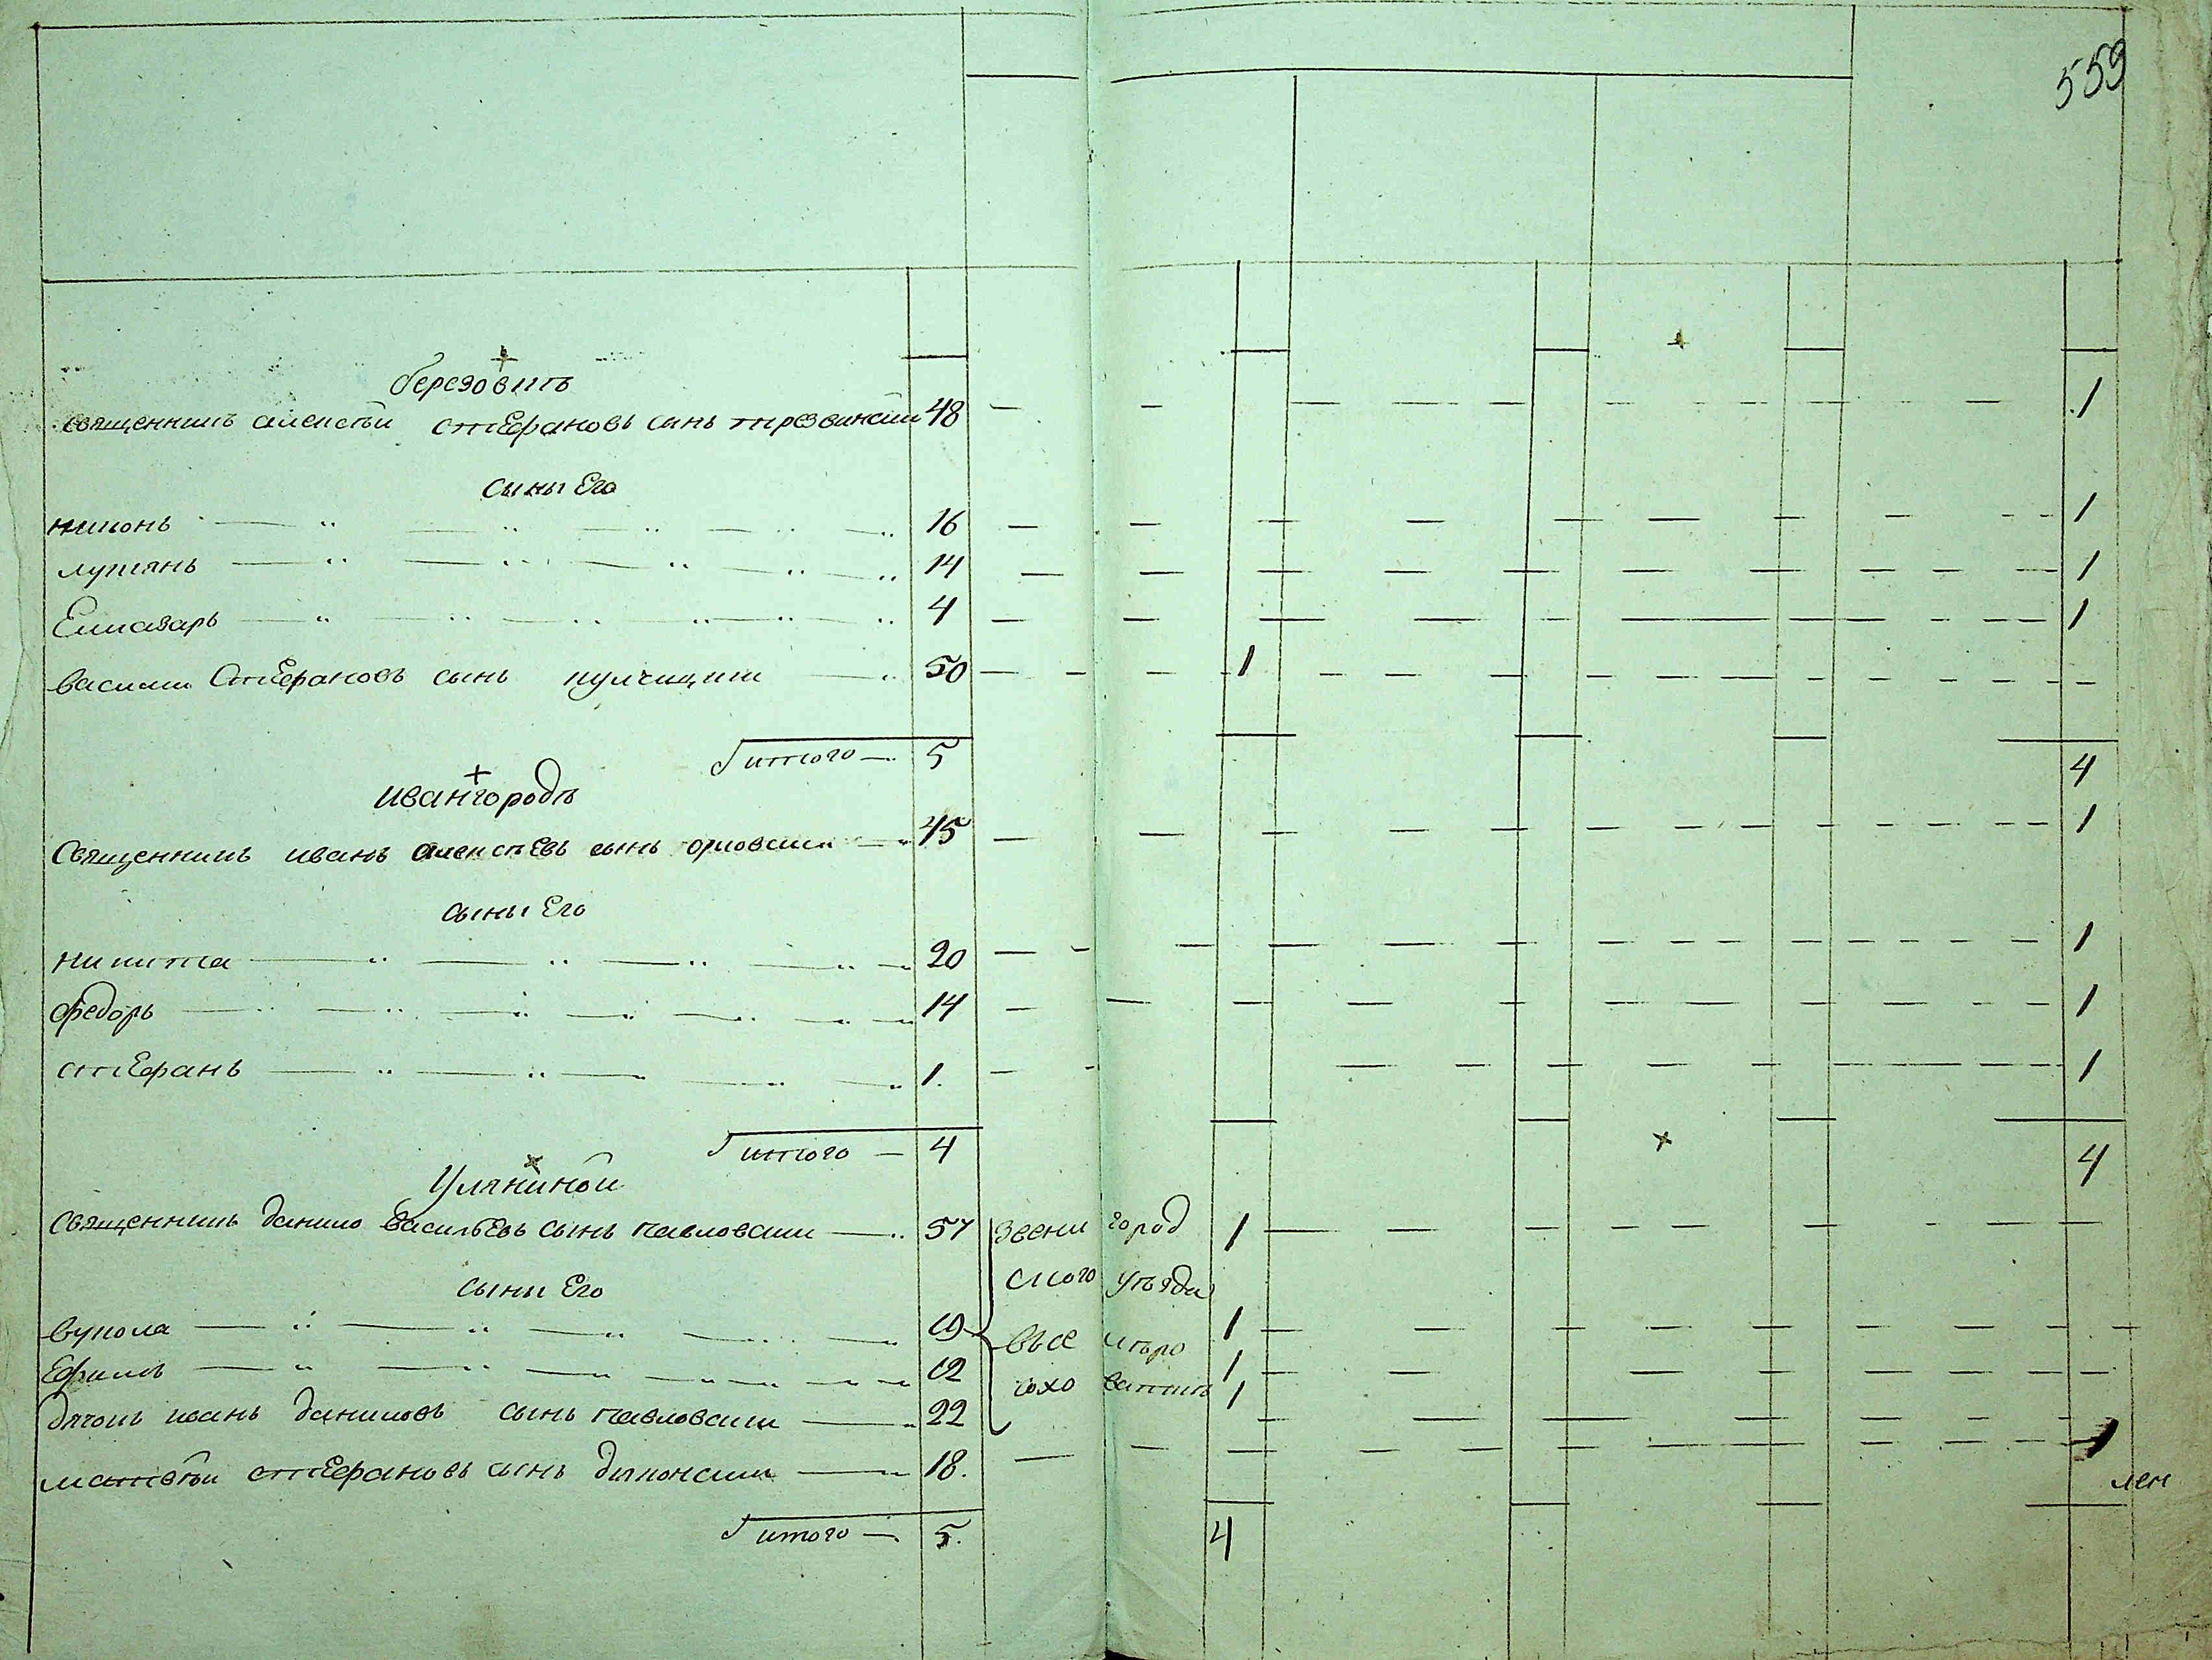 559
березовикъ
священникъ алексѣй стефановъ сынъ трезвинскій 48 — — — — 1
сыны Его
никонъ — — — 16 — — — 1
лукіянъ — — — 14 — — — 1
Елиазаръ — — — 4 — — — 1
василій Стефановъ сынъ — 50 — — 1 — — —
итого — 5 4
ивангородъ
Священникъ иванъ алексѣевъ сынъ орловскій — 45 — — — 1
сыны Его
никита — — — 20 — — — 1
федоръ — — — 14 — — — 1
стефанъ — — — 1. — — — 1
итого — 4 4
Уляниной
Священникъ данило васильевъ сынъ павловскій — 57 звени город 1 — — —
сыны Его ского уѣзда
вукола — — — 19 1 — — —
Ефимъ — — — 12 1 — — —
дячокъ иванъ даниловъ сынъ павловскій — 22 1 — — —
матвѣй стефановъ сынъ — 18. — — — 1
итого — 5. 4